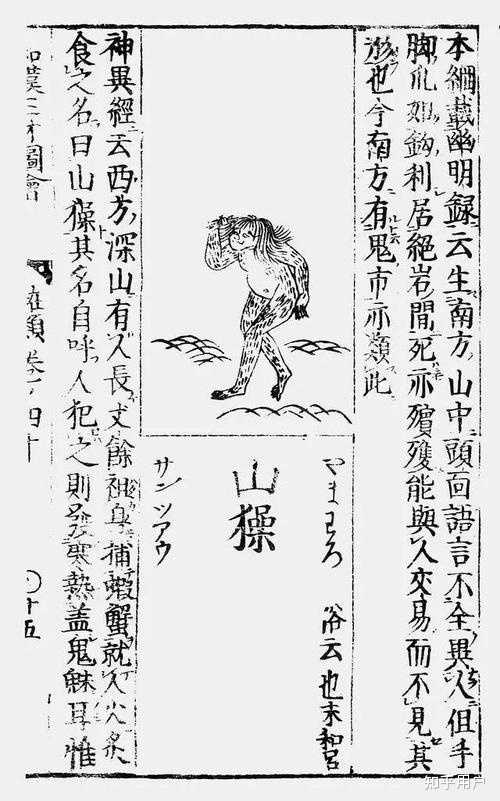 本綱載幽明録云生南方山中頭面語言不全異人但手
脚爪如鉤利居絶岩間死亦殯殮能與人交易而不見其
形也今南方有鬼市亦類此
やまわろ 俗云也末和呂
山𤢖
サンツアウ
神異經云西方深山有人長丈餘袒身捕蝦蟹就人火炙
食之名曰山𤢖其名自呼人犯之則發寒熱蓋鬼魅耳惟
和漢三才圖會 寓類 卷ノ四十 〇十五
知乎用户